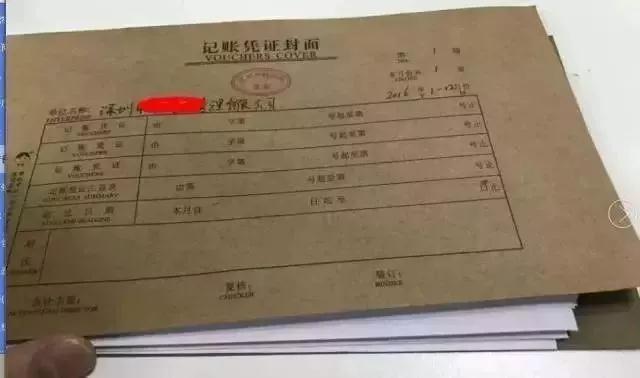 记账凭证封面
VOUCHERS COVER
第 1 册
本月份共 1 册
单位名称: 深圳市 管理有限公司
2016 年 1-12 月份
记账凭证 由 字第 号起至第 号止
VOUCHERS
记账凭证 由 字第 号起至第 号止
VOUCHERS
记账凭证 由 字第 号起至第 号止
VOUCHERS
记账凭证汇总表 由第 号起至第 号止
VOUCHERS SUMMARY
起讫日期 本月自 日起至 日止
附
注
会计主管: 复核: 装订:
CHECKER BINDER